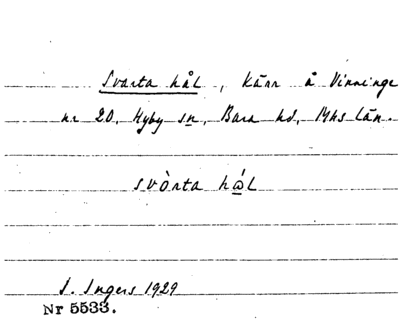 Svarta hål, kärr å Vinninge
nr 20, Hyby sn, Bara hd, Mhs län.
svòrta hǻl
I. Ingers 1929
Nr 5533.